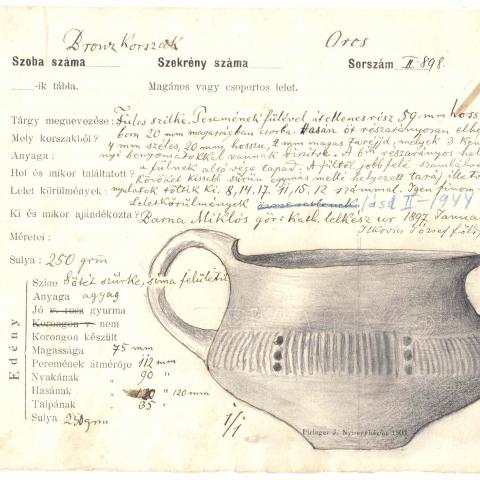 Bronz Korszak Oros
Szoba száma Szekrény száma Sorszám II-898.
-ik tábla. Magános vagy csoportos lelet.
Tárgy megnevezése: Füles szilke. Peremének fülével átellenes rész 59 mm hossz
Mely korszakból? ban 20 mm magasságban csorba. Hasán öt részarányosan elhe
4 mm széles, 20 mm, hosszu, 2 mm magas taréjd, melyek 3 ken
Anyaga : nyi benyomatokkal vannak díszítve. A 6ik részarányos hel
Hol és mikor találtatott? a fülnek alsó vége tapad. A fültől jobb felé számlálva
közöket kissebb sűrűn egymás mellé helyezett taraj illető
Lelet körülmények : nyolatok töltik ki. 8, 14, 17, 11, 15, 12 számmal. Igen finom
Leletkörülmények lásd II-1944
Ki és mikor ajándékozta? Barna Miklós gör: kath. lelkész ur 1897 Janua
Méretei : Itkovics József föld
Sulya : 250 grm
Edény
Szine Sötét szürke, sima felületü
Anyaga agyag
Jó v. rosz gyurma
Korongon v. nem
Korongon készült
Magassága 75 mm
Peremének átmérője 112 mm
Nyakának " 90 "
Hasának " 120 " 120 mm
Talpának " 35 "
Sulya 250 grm
1/1
Piringer J. Nyiregyháza 1901